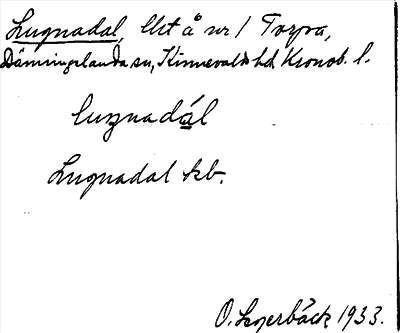 Lugnadal, lht å nr 1 Torpa,
Dänningelanda sn, Kinnevalds hd Kronob. l.
luŋnadál
Lugnadal kb.
O. Lagerbäck 1933.